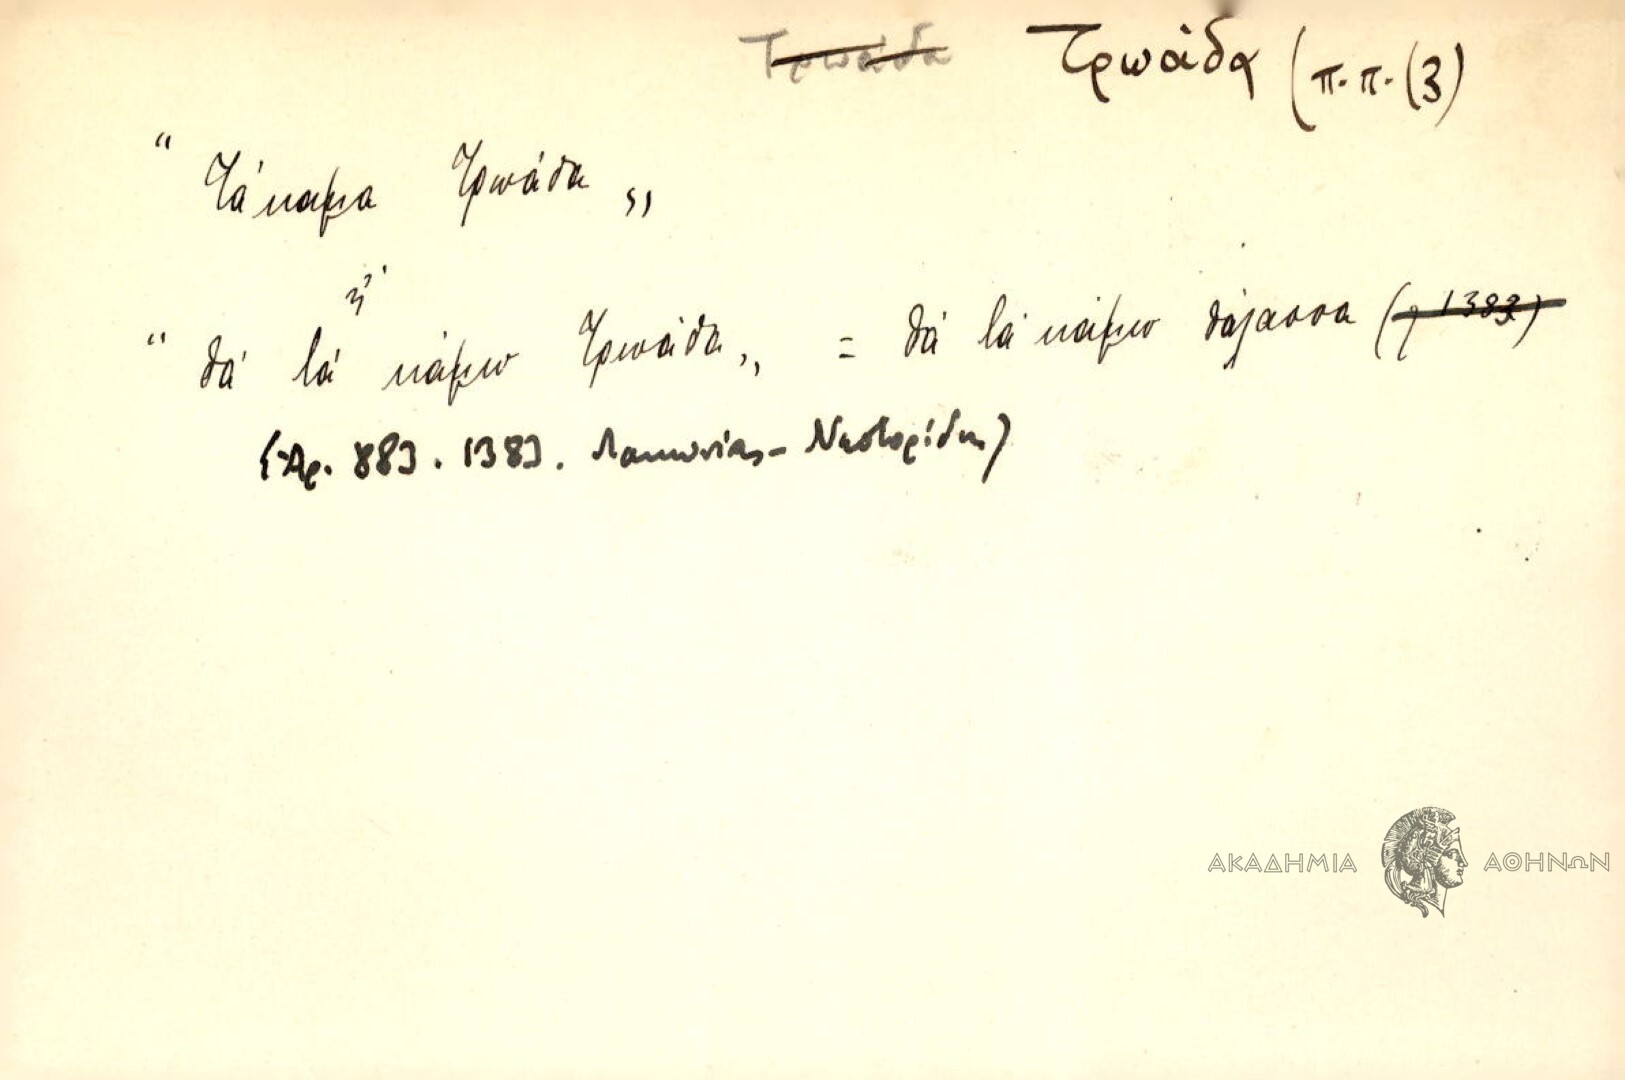 Τρωάδα Τρωάδα (π.π. (3)
“ Τά καμα Τρωάδα „
ἤ
“ θά τά κάμω Τρωάδα „ = θά τά κάμω θάλασσα ( 1383)
(Ἀρ. 883. 1383. Λακωνίας - Νεστορίδης)
ΑΚΑΔΗΜΙΑ ΑΘΗΝΩΝ